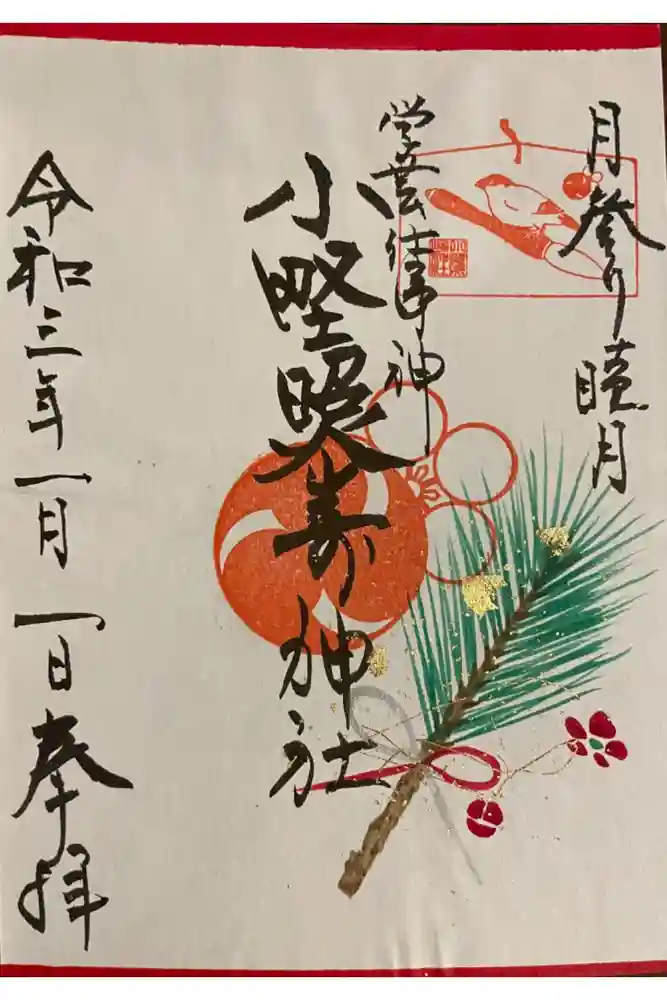 月参り 睦月
学芸仕事神
小野照崎神社
令和三年一月一日奉拝